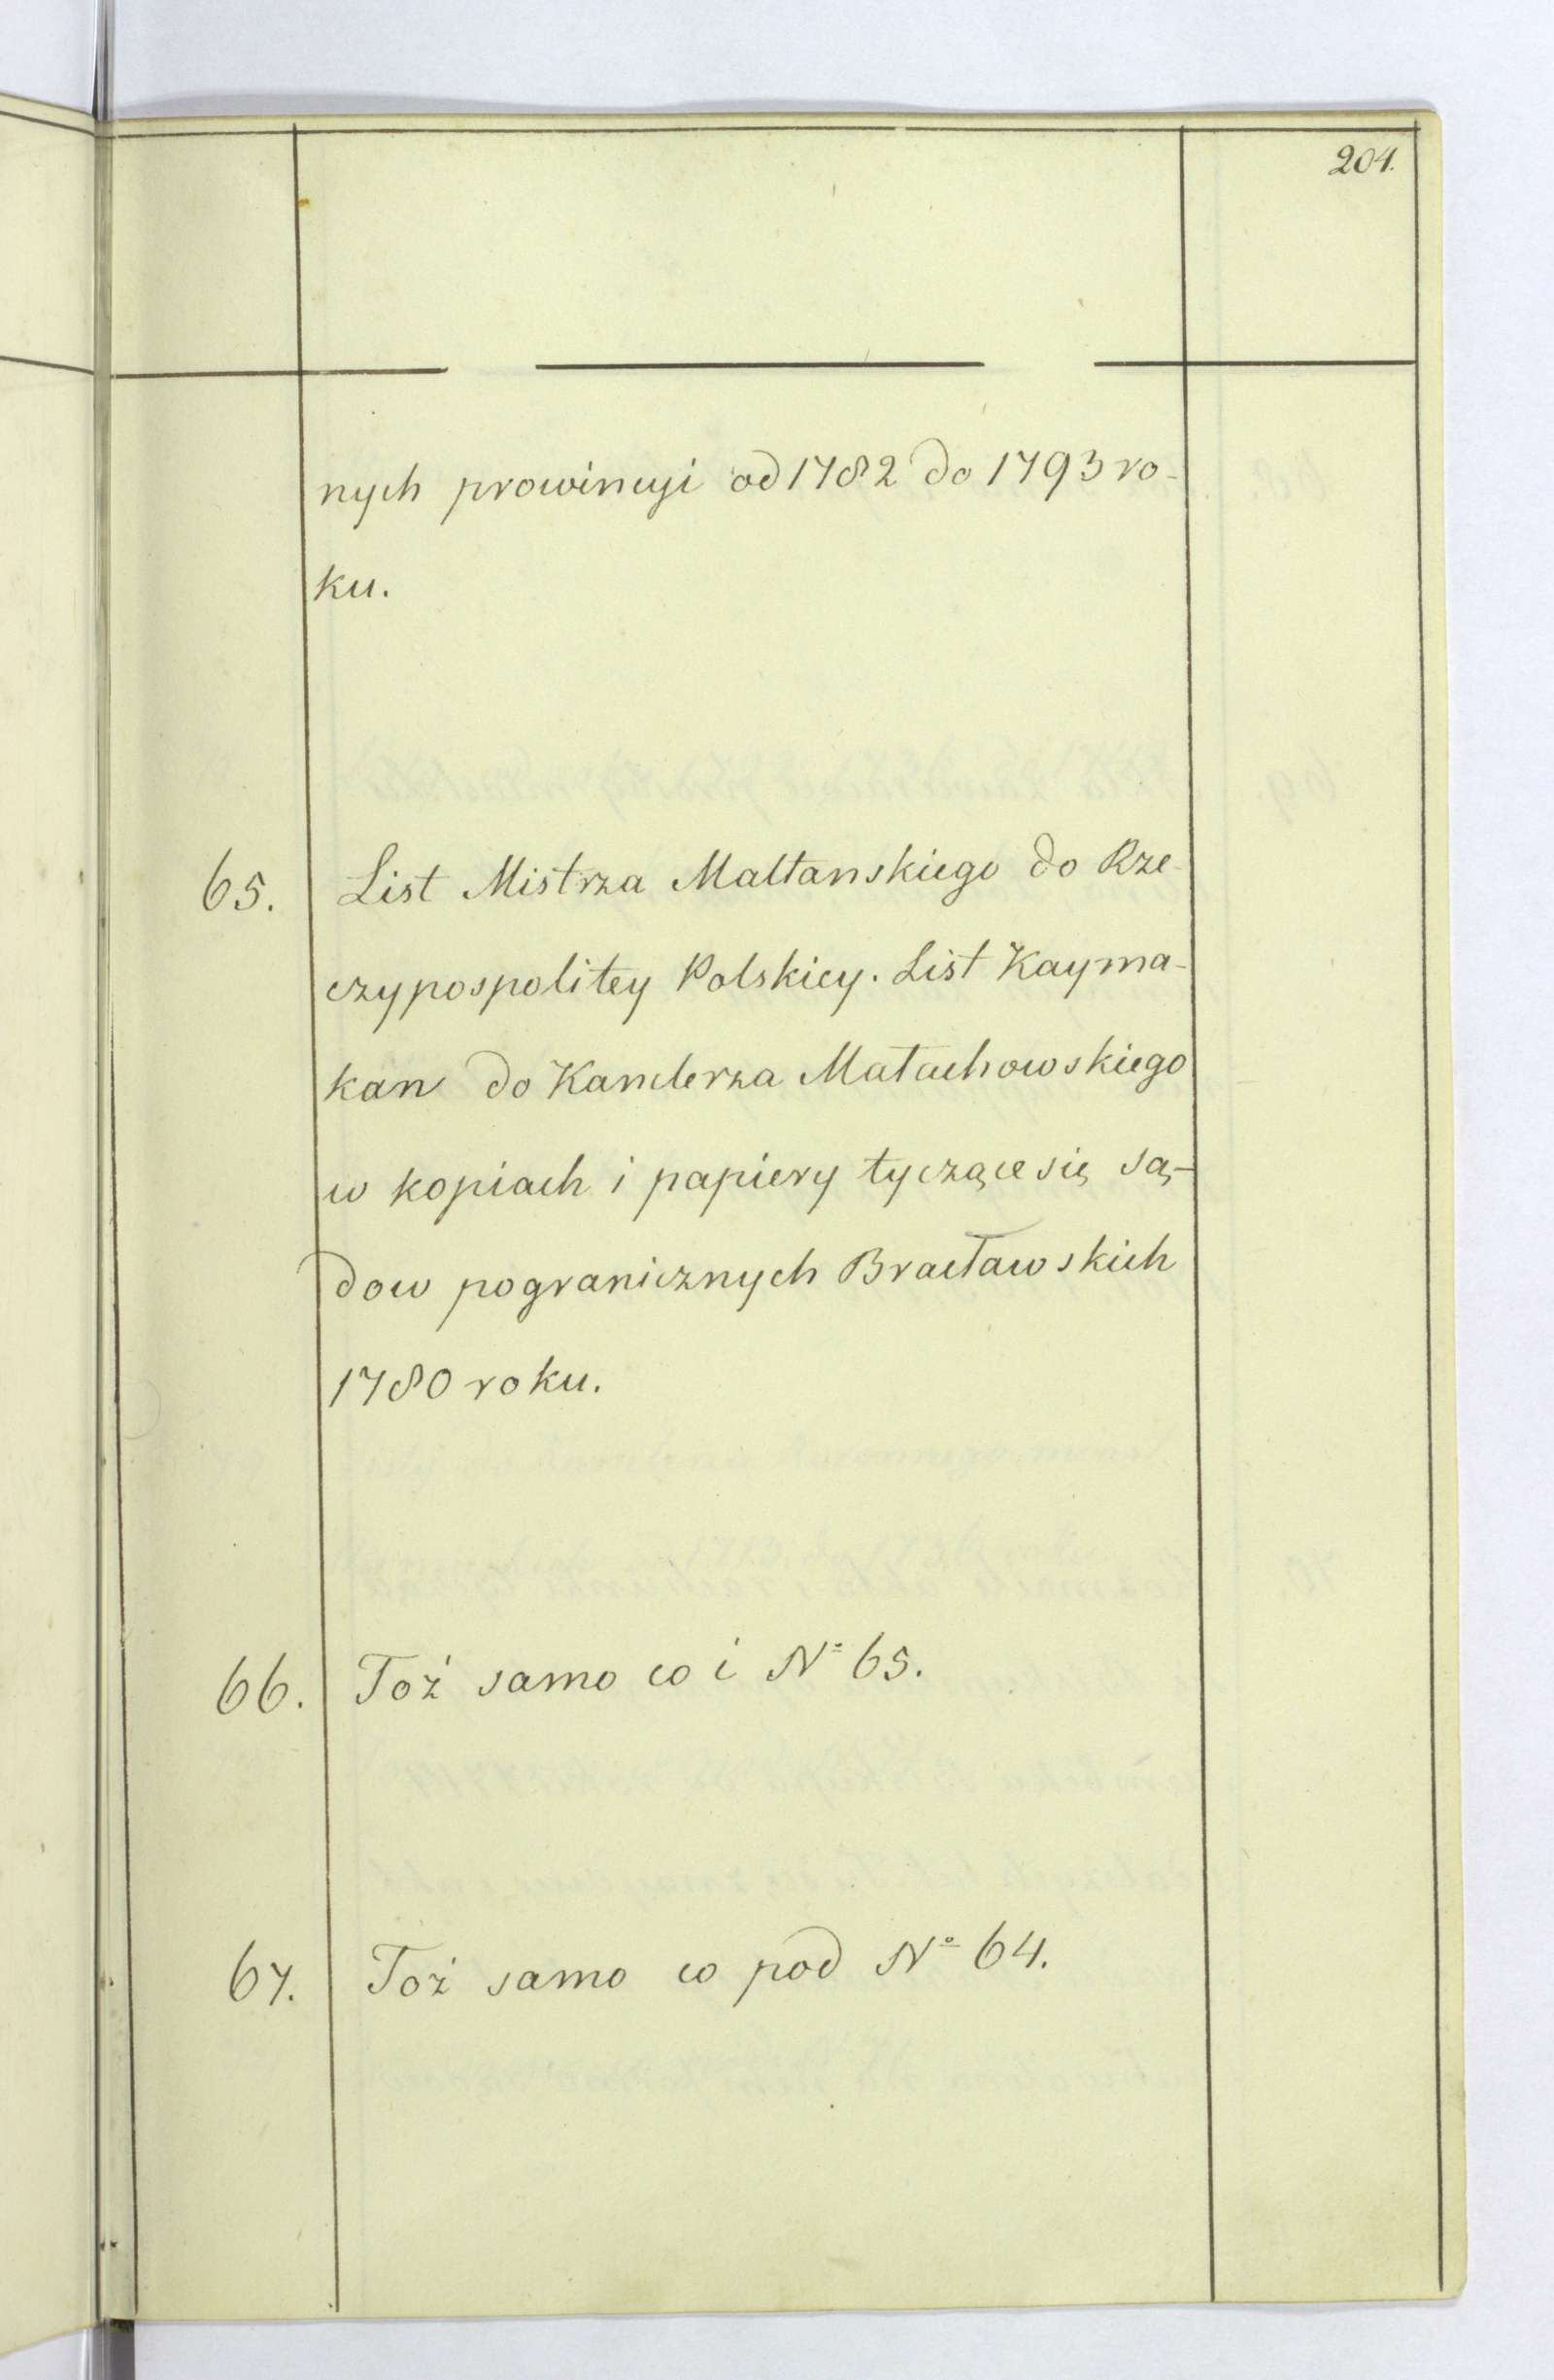 204.
nych prowincyi od 1782 do 1793 ro-
ku.
65. List Mistrza Maltanskiego do Rze-
czypospolitey Polskiey. List Kayma-
kan do Kanclerza Małachowskiego
w kopiach i papiery tyczące się są-
dow pogranicznych Bracławskich
1780 roku.
66. Toż samo co i Nº 65.
67. Toż samo co pod Nº 64.